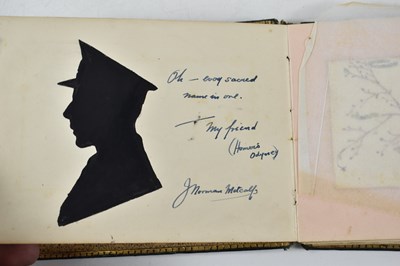 Oh – every sacred
name in one.
– My friend
(Homer's
Odyssey)
J Norman Metcalfe